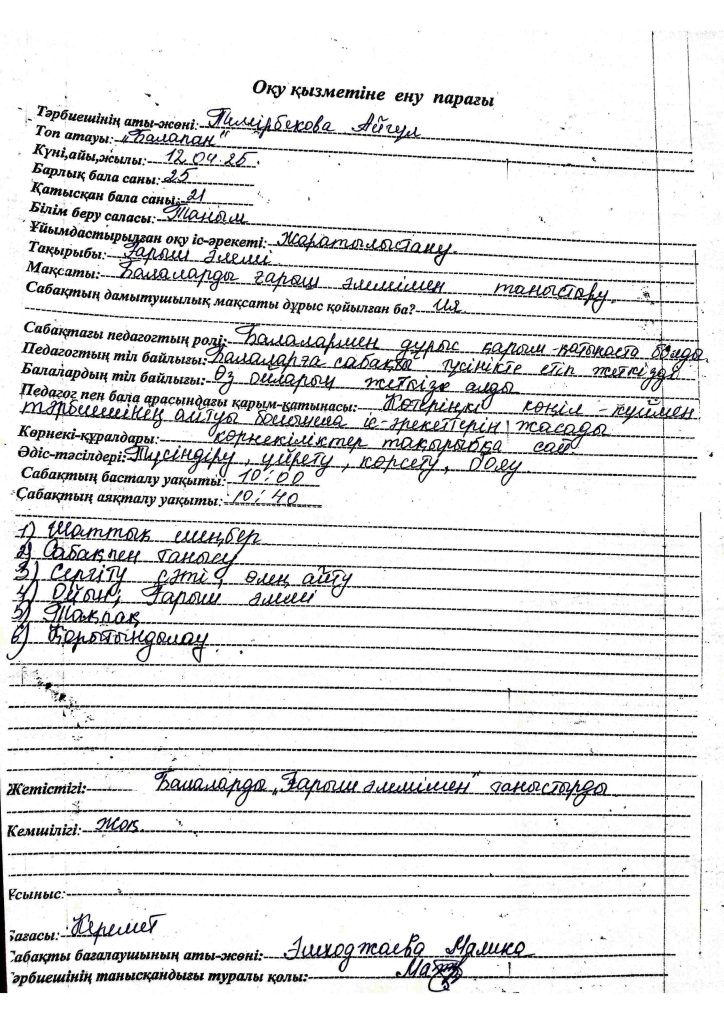 Оқу қызметіне ену парағы
Тәрбиешінің аты-жөні: Тимірбекова Айгул
Топ атауы: „Балапан"
Күні,айы,жылы: 12.04.25.
Барлық бала саны: 25
Қатысқан бала саны: 21
Білім беру саласы: Таным
Ұйымдастырылған оқу іс-әрекеті: Жаратылыстану.
Тақырыбы: Ғарыш әлемі
Мақсаты: Балаларды ғарыш әлемімен таныстыру.
Сабақтың дамытушылық мақсаты дұрыс қойылған ба? Ия
Сабақтағы педагогтың ролі: Балалармен дұрыс қарым-қатынаста болды.
Педагогтың тіл байлығы: Балаларға сабақты түсінікте етіп жеткізді
Балалардың тіл байлығы: Өз ойларын жеткізе алды
Педагог пен бала арасындағы қарым-қатынасы: Көтеріңкі көңіл-күймен
тәрбиешінің айтуы бойынша іс-әрекеттерін жасады
Көрнекі-құралдары: көрнекіліктер тақырыбқа сай
Әдіс-тәсілдері: Түсіндіру, үйрету, көрсету, бояу
Сабақтың басталу уақыты: 10:00
Сабақтың аяқталу уақыты: 10:40
1) Шаттық шеңбер
2) Сабақпен танысу
3) Сергіту сәті, өлең айту
4) Ойын; Ғарыш әлемі
5) Тақпақ
6) Қорытындылау.
Жетістігі: Балаларды „Ғарыш әлемімен" таныстырды
Кемшілігі: Жоқ.
Ұсыныс:
Бағасы: Керемет
Сабақты бағалаушының аты-жөні: Эшходжаева Малика
Тәрбиешінің танысқандығы туралы қолы: